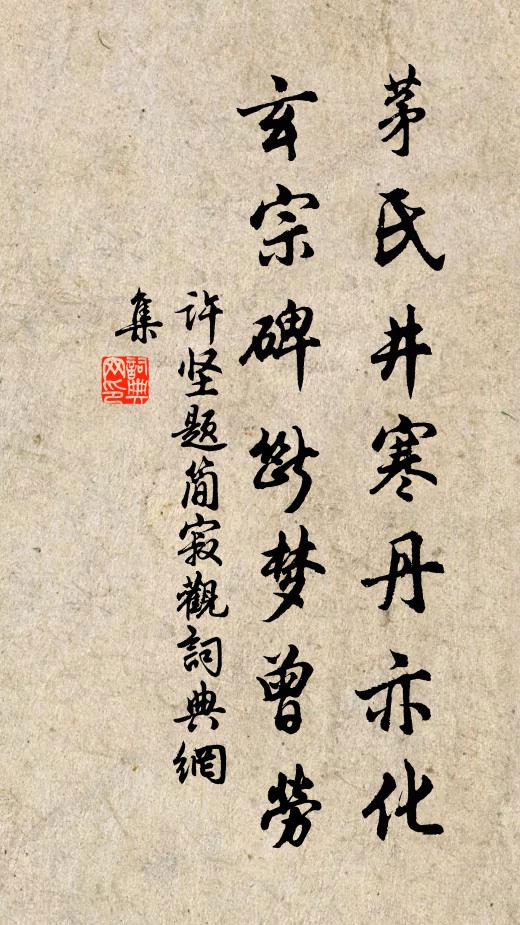 茅氏井寒丹亦化
玄宗碑断梦曾劳
许坚题简寂觀詞典網
集
詞典网印